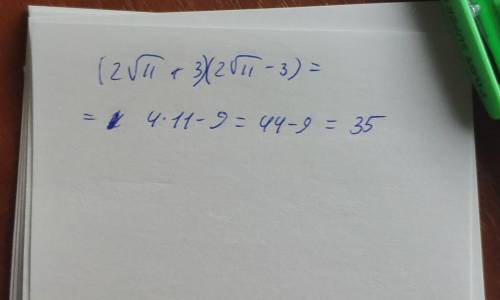 (2√11 + 3)(2√11 - 3) =
= 4·11 - 9 = 44 - 9 = 35